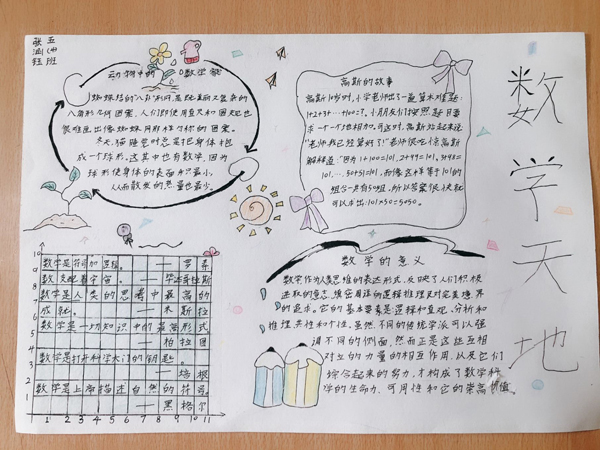 五(4)班
张涵钰
动物中的数学家
蜘蛛结的"八卦"形网,是既美丽又复杂的
八角形几何图案,人们即使用直尺和圆规也
很难画出像蜘蛛网那样匀称的图案。
冬天,猫睡觉时总是把身体抱
成一个球形,这其中也有数学,因为
球形使身体的表面积最小,
从而散发的热量也最少。
高斯的故事
高斯10岁时,小学老师出了一道算术难题:
1+2+3+…+100=?。小朋友们按照题目要
求一个一个地相加。可这时,高斯站起来说:
"老师我已经算好了!"老师很吃惊,高斯
解释道:"因为1+100=101,2+99=101,3+98=
101,……50+51=101,而像这样等于101的
组合一共有50组,所以答案很快就
可以求出:101×50=5050。
数学天地
数学的意义
数学作为人类思维的表达形式,反映了人们积极
进取的意志,缜密周详的逻辑推理及对完美境界
的追求。它的基本要素是逻辑和直观、分析和
推理、共性和个性。虽然不同的传统学派可以强
调不同的侧面,然而正是这些互相
对立的力量的相互作用,以及它们
综合起来的努力,才构成了数学科
学的生命力,可用性和它的崇高价值。
数学是符号加逻辑。——罗素
数支配着宇宙。——毕达哥拉斯
数学是人类的思考中最高的
成就。——米斯拉
数学是一切知识中的最高形式
——柏拉图
数学是打开科学大门的钥匙。
——培根
数学是上帝描述自然的符号。
——黑格尔
10
9
8
7
6
5
4
3
2
1
1 2 3 4 5 6 7 8 9 10 11